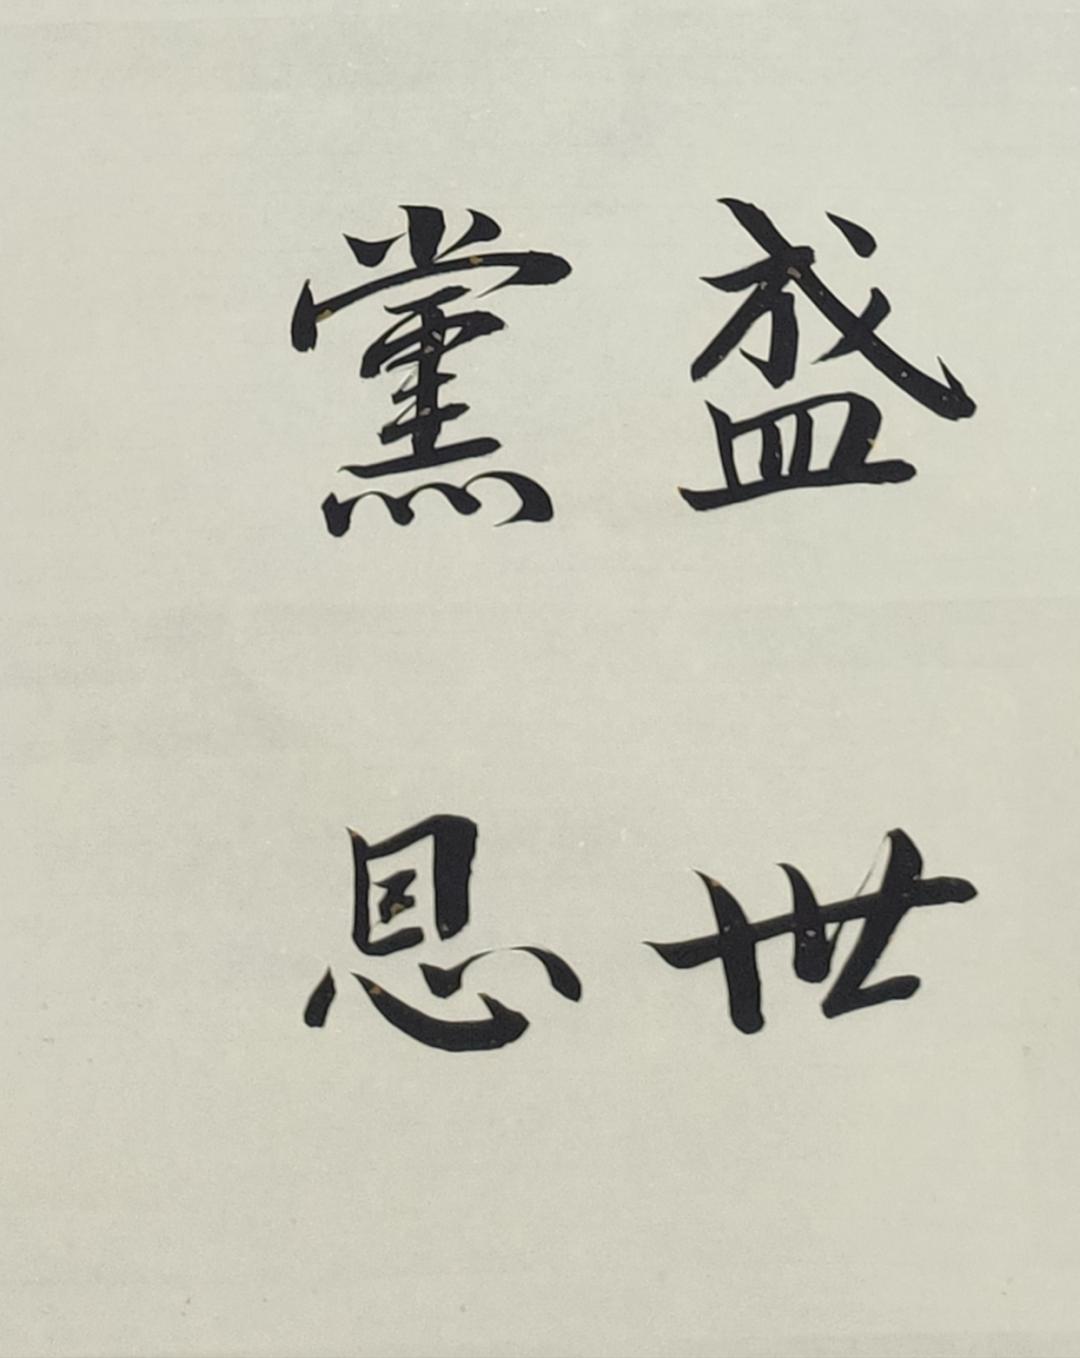 盛世
黨恩